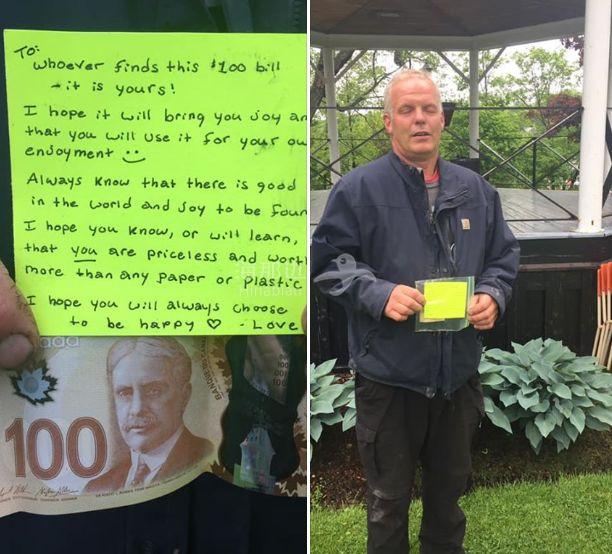 To:
Whoever finds this $100 bill
- it is yours!
I hope it will bring you joy an
that you will use it for your ow
enjoyment
Always know that there is good
in the world and joy to be foun
I hope you know, or will learn,
that you are priceless and worth
more than any paper or plastic
I hope you will always choose
to be happy ♡ - Love
ada
100
BANQUE
carhartt